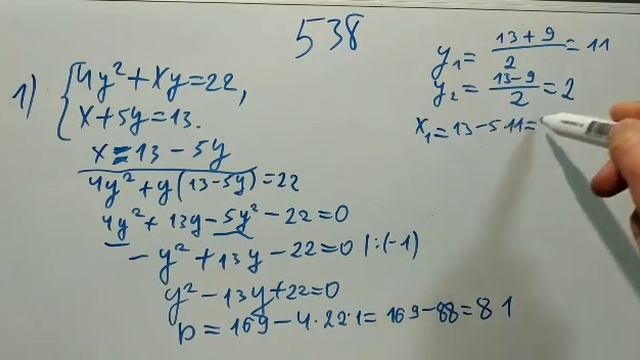 538
1) { 4y² + xy = 22,
x + 5y = 13.
x = 13 - 5y
4y² + y(13 - 5y) = 22
4y² + 13y - 5y² - 22 = 0
- y² + 13y - 22 = 0 |:(-1)
y² - 13y + 22 = 0
D = 169 - 4·22·1 = 169 - 88 = 81
y₁ = (13 + 9)/2 = 11
y₂ = (13 - 9)/2 = 2
x₁ = 13 - 5·11 =